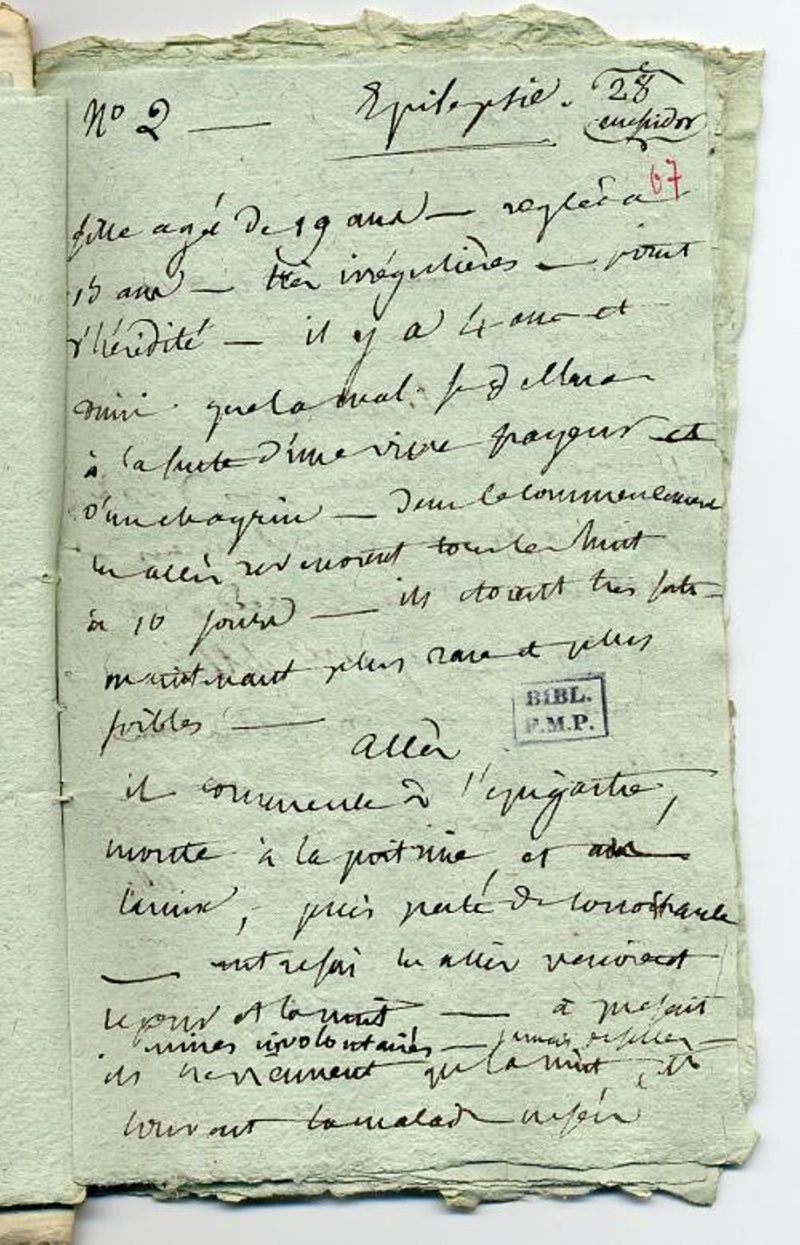 No 2 — Epilepsie. 28
messidor
67
fille agé de 19 ans — reglée a
15 ans — très irrégulières — point
d'hérédité — il y a 4 ans et
demi que la mal se
à la suite d'une vive frayeur et
d'un chagrin — dans le commencement
les accès revenoient tous les huit
à 10 jours — ils etoient tres forts —
maintenant plus rare et plus
foibles —
Accès
il commence à l'epigastre,
monte à la poitrine, et au
larinx, — puis perte de connoissance
— autrefois les accès venoient
le jour et la nuit — a present
urines involontaires — jamais de selles —
ils ne viennent que la nuit, et
souvent la malade
BIBL.
F.M.P.